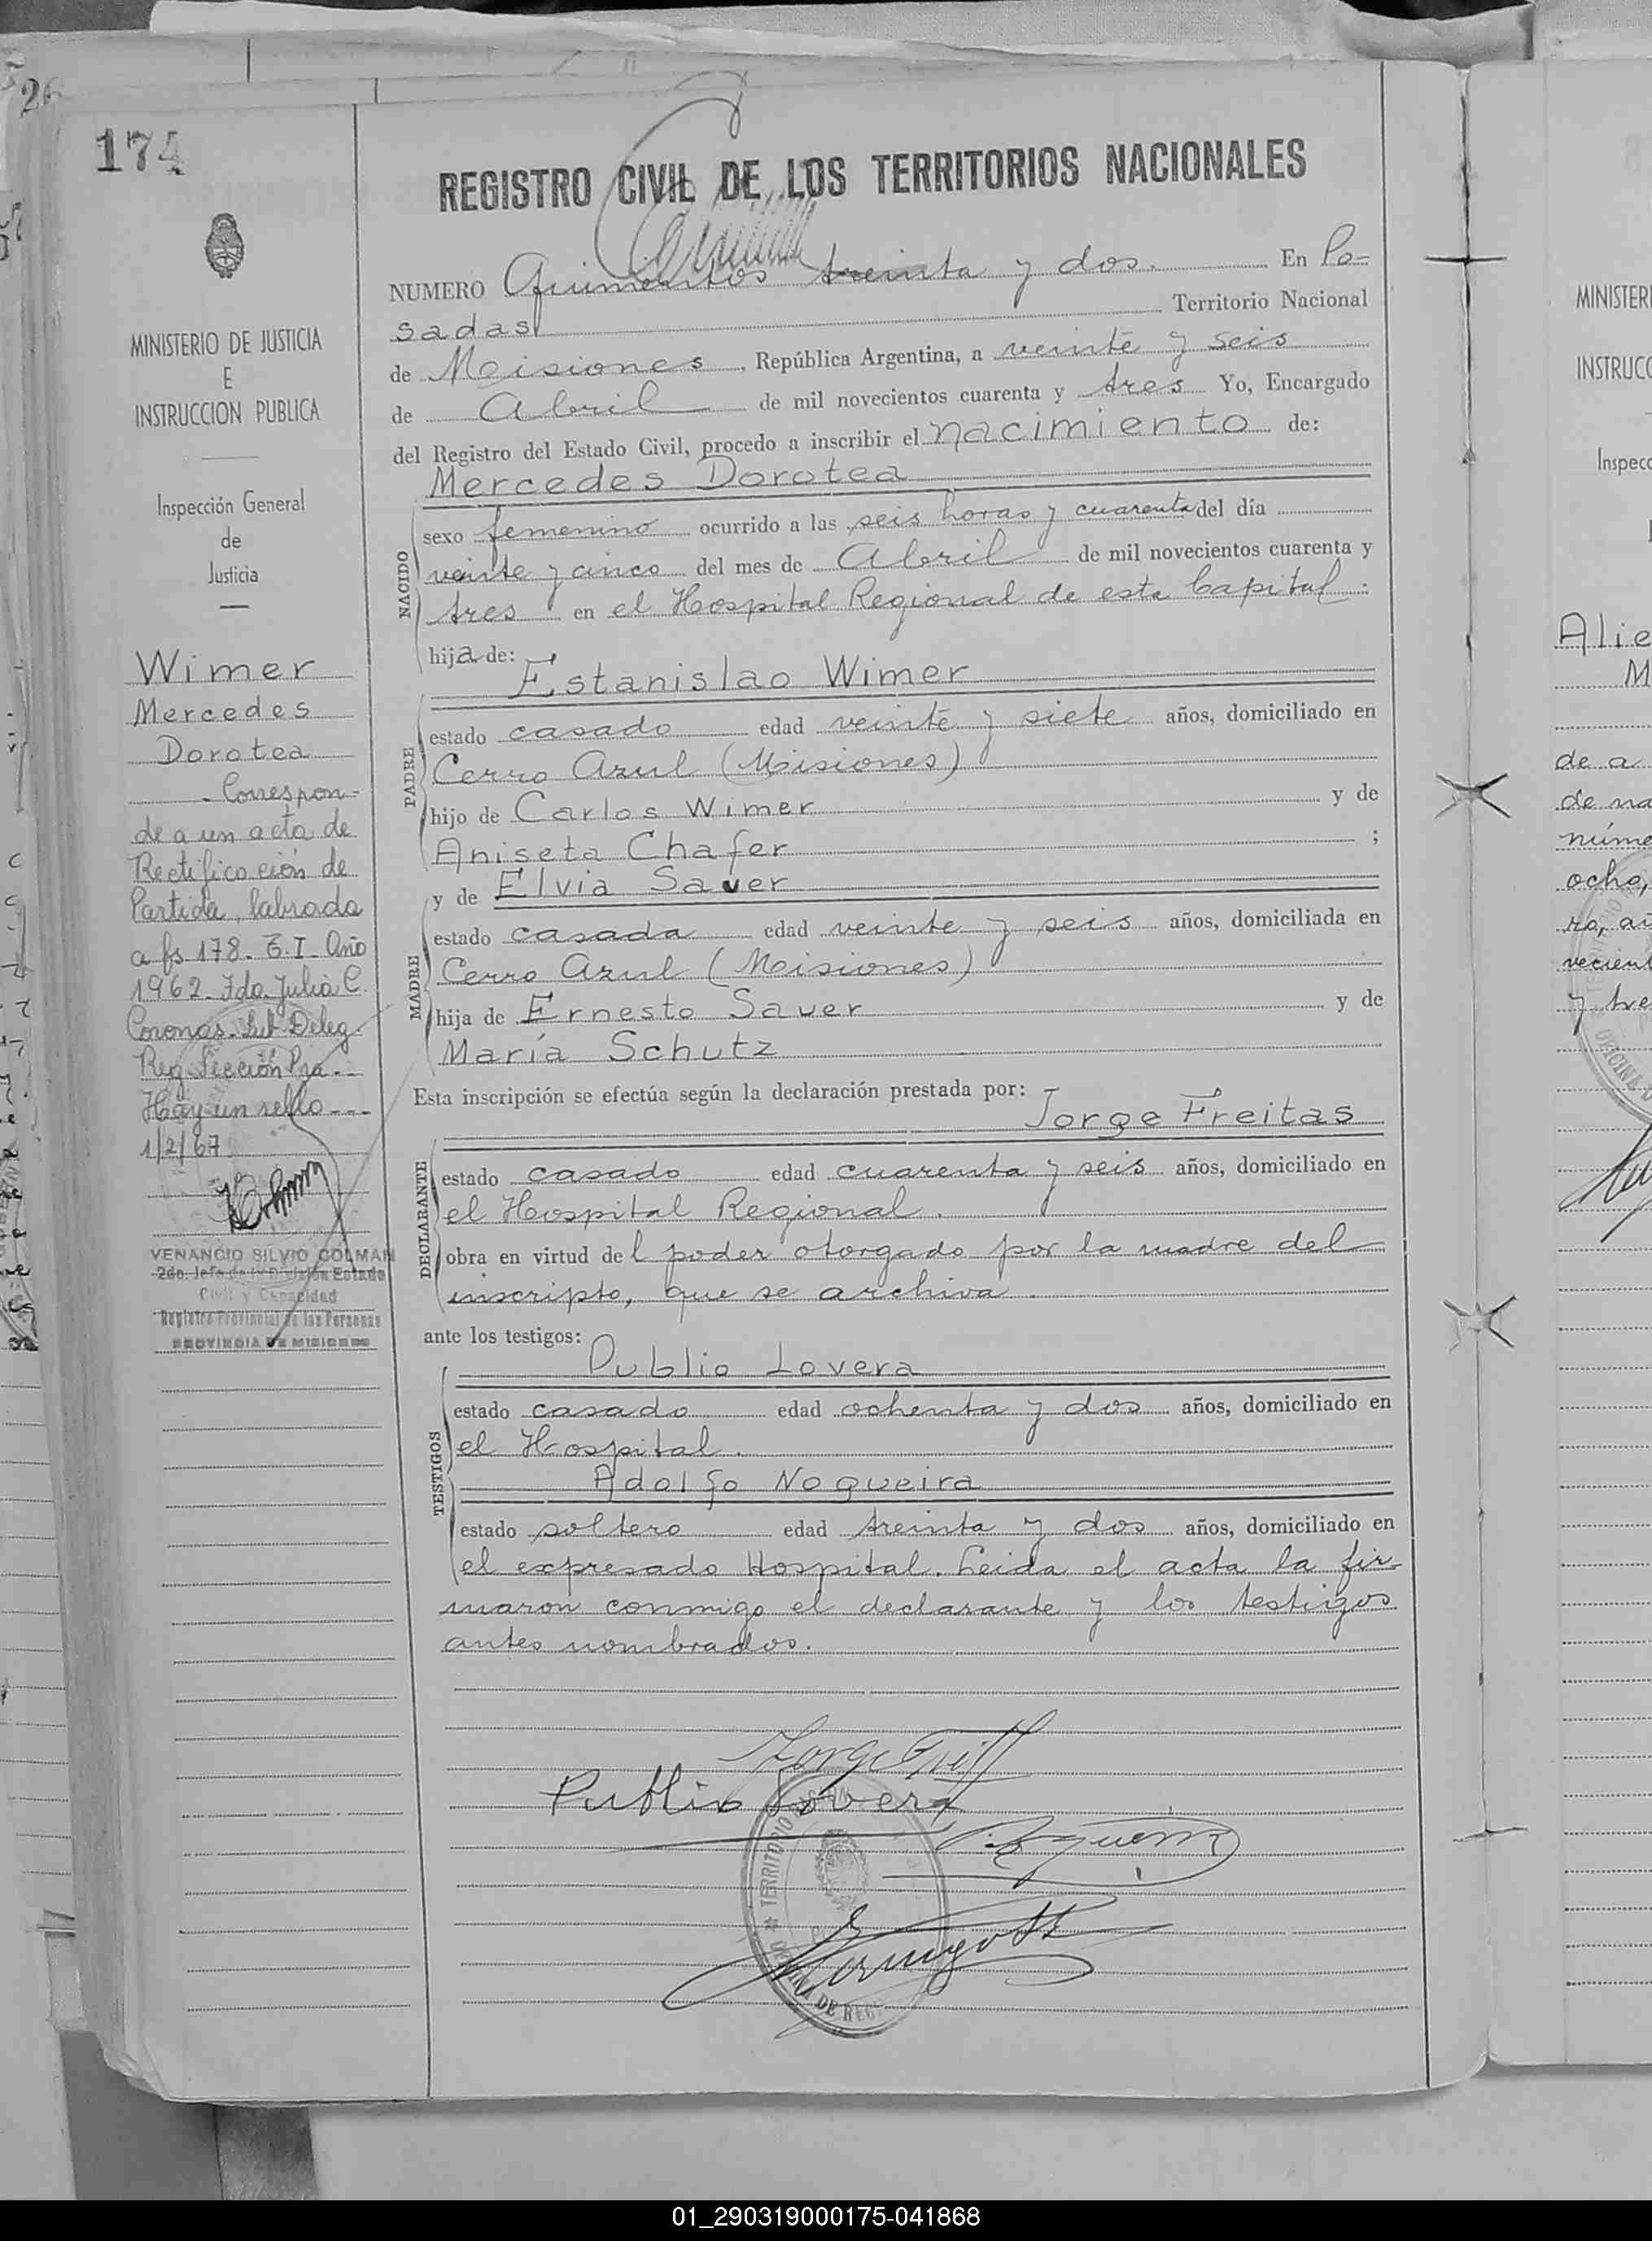 174
REGISTRO CIVIL DE LOS TERRITORIOS NACIONALES
NUMERO Quinientos treinta y dos. En Po-
sadas Territorio Nacional
de Misiones, República Argentina, a veinte y seis
de Abril de mil novecientos cuarenta y tres Yo, Encargado
del Registro del Estado Civil, procedo a inscribir el nacimiento de:
Mercedes Dorotea
NACIDO
sexo femenino ocurrido a las seis horas y cuarenta del día
veinte y cinco del mes de Abril de mil novecientos cuarenta y
tres en el Hospital Regional de esta Capital:
hija de:
Estanislao Wimer
PADRE
estado casado edad veinte y siete años, domiciliado en
Cerro Azul (Misiones)
hijo de Carlos Wimer y de
Aniseta Chafer ;
y de Elvia Sauer
MADRE
estado casada edad veinte y seis años, domiciliada en
Cerro Azul (Misiones)
hija de Ernesto Sauer y de
María Schutz
Esta inscripción se efectúa según la declaración prestada por:
Jorge Freitas
DECLARANTE
estado casado edad cuarenta y seis años, domiciliado en
el Hospital Regional.
obra en virtud del poder otorgado por la madre del
inscripto, que se archiva.
ante los testigos:
Publio Lovera
TESTIGOS
estado casado edad ochenta y dos años, domiciliado en
el Hospital.
Adolfo Nogueira
estado soltero edad treinta y dos años, domiciliado en
el expresado Hospital. Leida el acta la fir-
maron conmigo el declarante y los testigos
antes nombrados.
Publio Lovera
TERRITORIO
MINISTERIO DE JUSTICIA
E
INSTRUCCION PUBLICA
Inspección General
de
Justicia
Wimer
Mercedes
Dorotea
- Correspon-
de a un acta de
Rectificación de
Partida, labrada
a fs 178. T. I. Año
1962. Fdo. Julia C.
Coronas. Sub. Deleg.
Reg. Sección Pra.
Hay un sello ---
1/2/67
VENANCIO SILVIO COLMAN
2do. Jefe de la División Estado
Civil y Capacidad
Registro Provincial de las Personas
PROVINCIA DE MISIONES
MINISTER
INSTRUCC
Inspec
Alie
M
de a
núme
ocho,
y tre
01_290319000175-041868